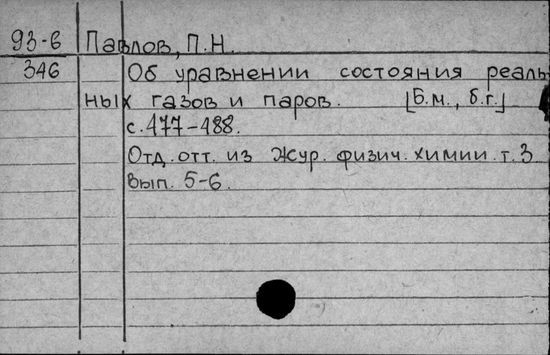 93-6 Павлов, П.Н.
346 Об уравнении состояния реаль
ных газов и паров. [Б.м., б.г.]
с. 477-488.
Отд. отт. из Жур. физич. химии. т. 3
Вып. 5-6.